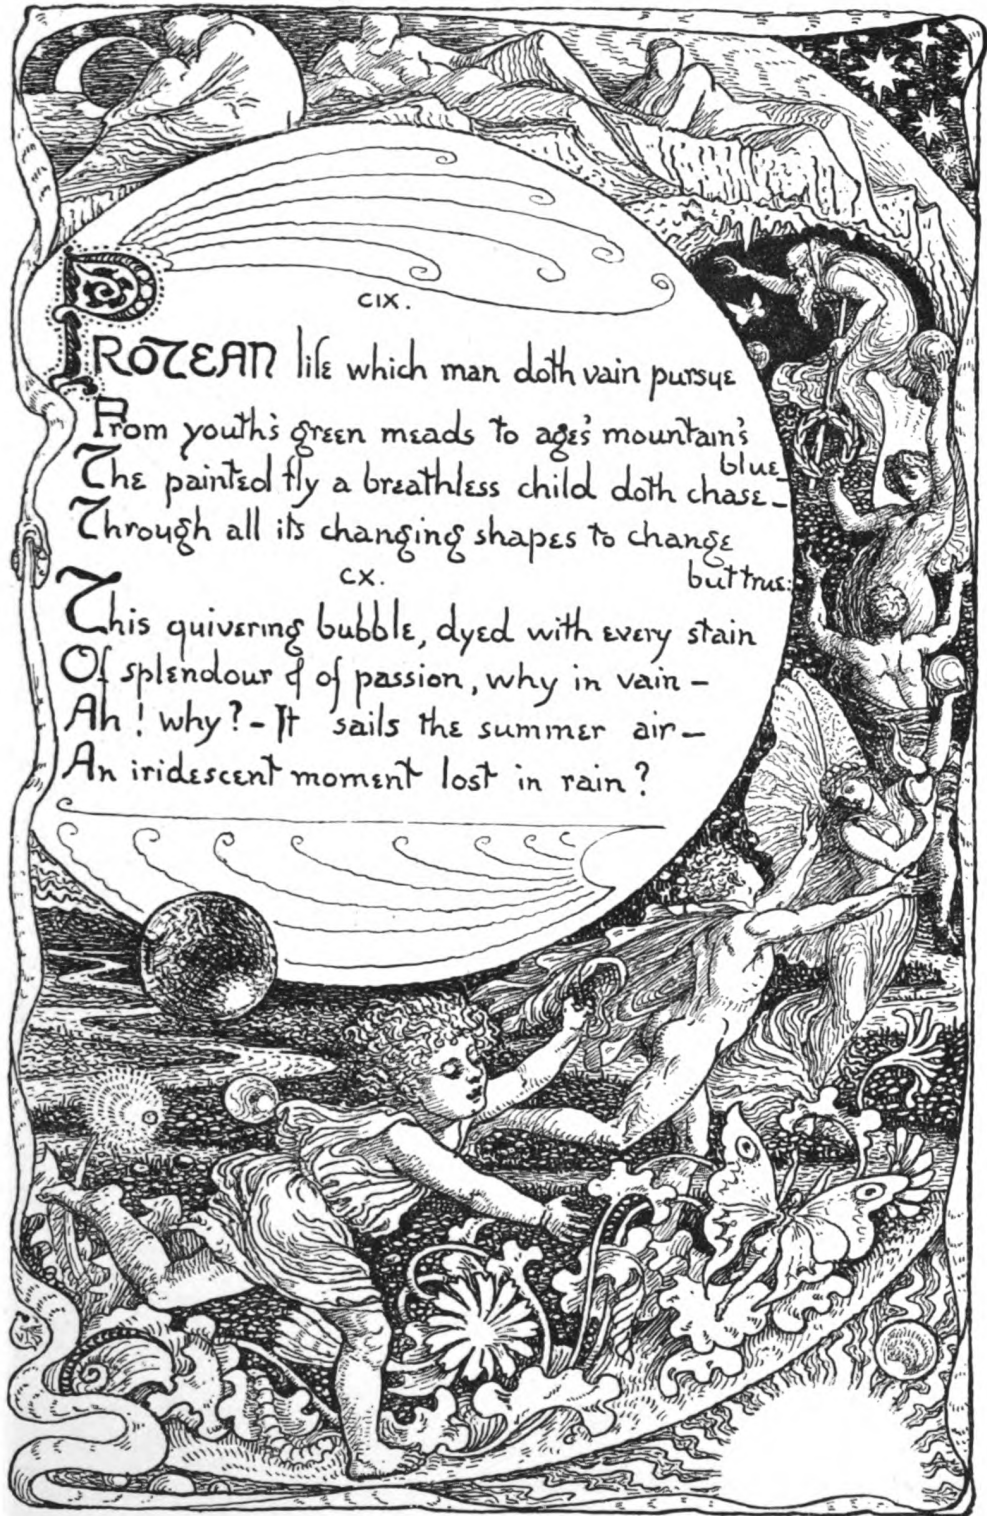 CIX.
PROTEAN life which man doth vain pursue
From youth's green meads to age's mountain's blue
The painted fly a breathless child doth chase –
Through all its changing shapes to change but true:
CX.
This quivering bubble, dyed with every stain
Of splendour & of passion, why in vain –
Ah! why? – It sails the summer air –
An iridescent moment lost in rain?